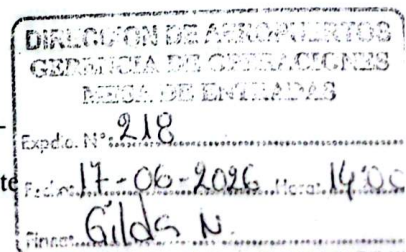 DIRECCION DE AEROPUERTOS
GERENCIA DE OPERACIONES
MESA DE ENTRADAS
Expdte. N° 218
Fecha: 17-06-2026 Hora: 14:00
Firma: Gilda N.